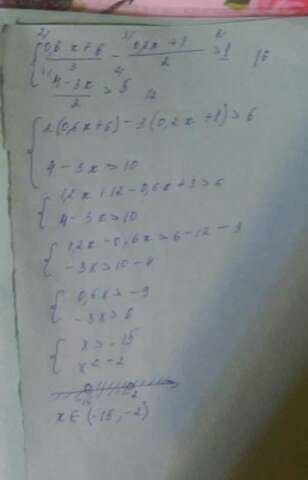 (0,6x+6)/3 - (0,2x+8)/2 > 1 |·6
(4-3x)/2 > 5 |·2
2(0,6x+6)-3(0,2x+1)>6
4-3x>10
1,2x+12-0,6x+3>6
4-3x>10
1,2x-0,6x>6-12-3
-3x>10-4
0,6x>-9
-3x>6
x>-15
x<-2
-15 -2
x∈(-15,-2)